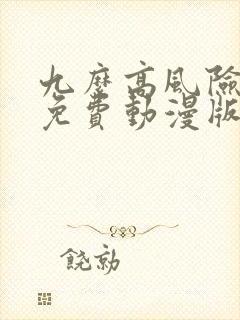 九麼高風險
免費動漫版
饒勍